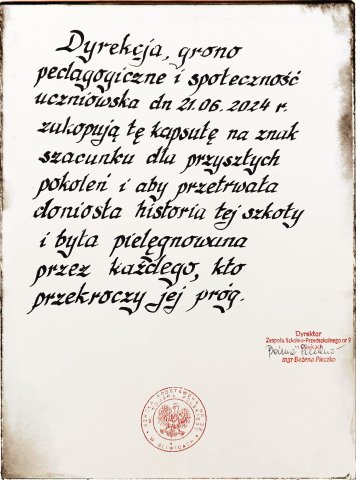 Dyrekcja, grono
pedagogiczne i społeczność
uczniowska dn 21.06.2024 r.
zakopują tę kapsułę na znak
szacunku dla przyszłych
pokoleń i aby przetrwała
doniosła historia tej szkoły
i była pielęgnowana
przez każdego, kto
przekroczy jej próg.
Dyrektor
Zespołu Szkolno-Przedszkolnego nr 9
w Gliwicach
mgr Bożena Pleczko
W GLIWICACH